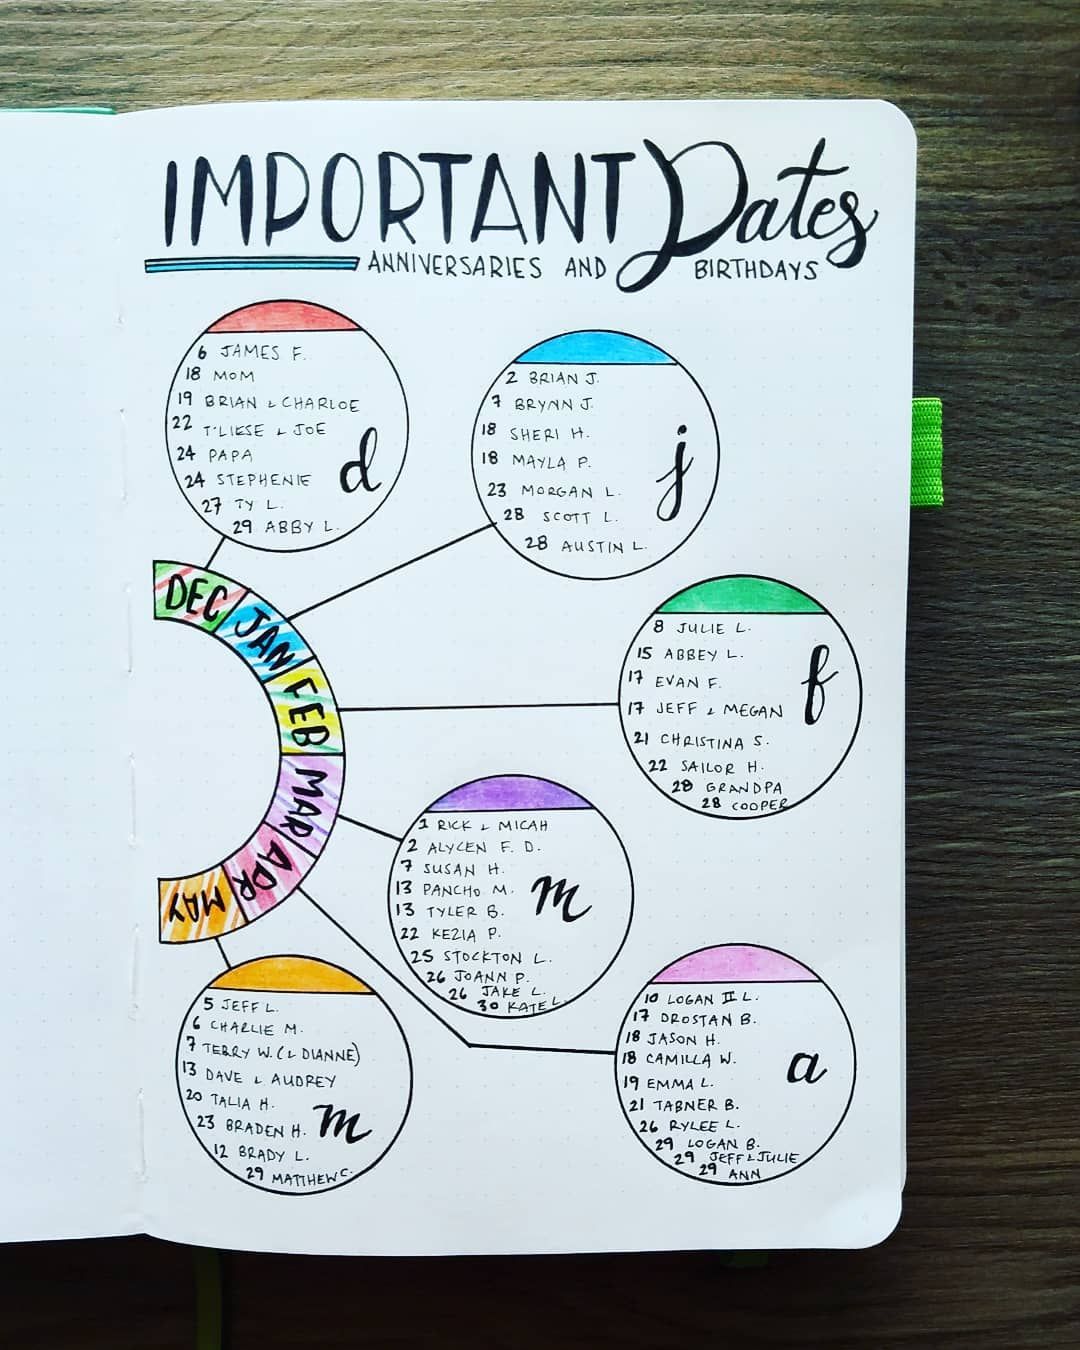 IMPORTANT Dates
ANNIVERSARIES AND BIRTHDAYS
6 JAMES F.
18 MOM
19 BRIAN & CHARLOE
22 T'LIESE & JOE
24 PAPA
24 STEPHENIE
27 TY L.
29 ABBY L.
d
2 BRIAN J.
7 BRYNN J.
18 SHERI H.
18 MAYLA P.
23 MORGAN L.
28 SCOTT L.
28 AUSTIN L.
j
DEC
JAN
FEB
MAR
APR
MAY
8 JULIE L.
15 ABBEY L.
17 EVAN F.
17 JEFF & MEGAN
21 CHRISTINA S.
22 SAILOR H.
28 GRANDPA
28 COOPER
f
1 RICK & MICAH
2 ALYCEN F. D.
7 SUSAN H.
13 PANCHO M.
13 TYLER B.
22 KEZIA P.
25 STOCKTON L.
26 JOANN P.
26 JAKE L.
30 KATE L.
m
10 LOGAN II L.
17 DROSTAN B.
18 JASON H.
18 CAMILLA W.
19 EMMA L.
21 TABNER B.
26 RYLEE L.
29 LOGAN B.
29 JEFF & JULIE
29 ANN
a
5 JEFF L.
6 CHARLIE M.
7 TERRY W. (& DIANNE)
13 DAVE & AUDREY
20 TALIA H.
23 BRADEN H.
12 BRADY L.
29 MATTHEW C.
m